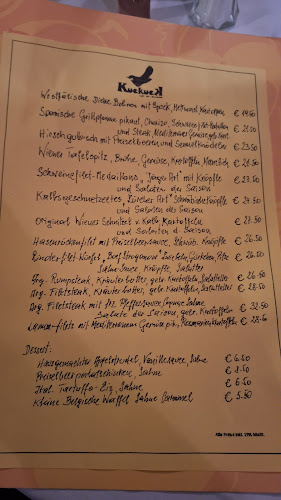 Kuckuck
Westfälische Dicke Bohnen mit Speck, Mettwurst, Kartoffeln € 19.50
Spanische Grillpfanne pikant, Chorizo, Schweine
und Steak, Mediterranes Gemüse € 21.00
Hirschgulasch mit Preiselbeeren und Semmelknödeln € 23.50
Wiener Tafelspitz, Brühe, Gemüse, Kartoffeln, Meerrettich € 26.50
Schweinefilet-Medaillons, "Jäger Art" mit Kröpfle € 23.50
und Salaten der Saison
Kalbsgeschnetzeltes, "Zürcher Art" € 24.50
und Salaten der Saison
Original Wiener Schnitzel v. Kalb Kartoffeln € 27.50
und Salaten d. Saison
Hasenrückenfilet mit Preiselbeersauce, Kröpfle € 26.50
Rinderfilet € 26.50
Sahne Sauce Kröpfle, Salatteller
Arg. Rumpsteak, Kräuterbutter, gebr. Kartoffeln, Salatteller € 26.50
Arg. Filetsteak, Kräuterbutter, gebr. Kartoffeln, Salatteller € 28.50
Arg. Filetsteak mit Pfeffersauce
Salate der Saison, gebr. Kartoffeln € 32.50
Lamm-filets mit Mediterranem Gemüse pik., Rosmarinkartoffeln € 28.50
Dessert:
Hausgemachter Apfelstrudel, Vanillesauce, Sahne € 6.50
Preiselbeerpfannkuchen, Sahne
Ital. Tartuffo-Eis, Sahne € 6.50
Kleine Belgische Waffel Sahne Karamel € 5.50
Alle Preise inkl. 19% MwSt.